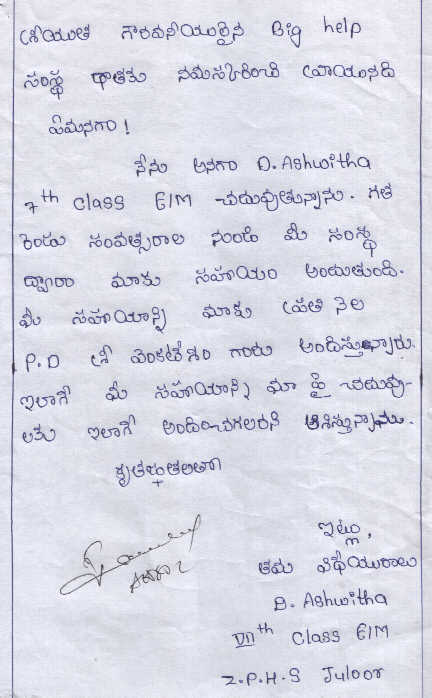 శ్రీయుత గౌరవనీయులైన Big help
సంస్థ దాతకు నమస్కరించి వ్రాయునది
ఏమనగా!
నేను అనగా D. Ashwitha
7th class E/M చదువుతున్నాను. గత
రెండు సంవత్సరాల నుండి మీ సంస్థ
ద్వారా మాకు సహాయం అందుతుంది.
మీ సహాయాన్ని మాకు ప్రతి నెల
P.D శ్రీ వెంకటేశం గారు అందిస్తున్నారు.
ఇలాగే మీ సహాయాన్ని మా పై చదువు-
లకు ఇలాగే అందించగలరని ఆశిస్తున్నాము.
కృతజ్ఞతలతో
ఇట్లు,
తమ విధేయురాలు
D. Ashwitha
VIIth class E/M
Z.P.H.S Juloor